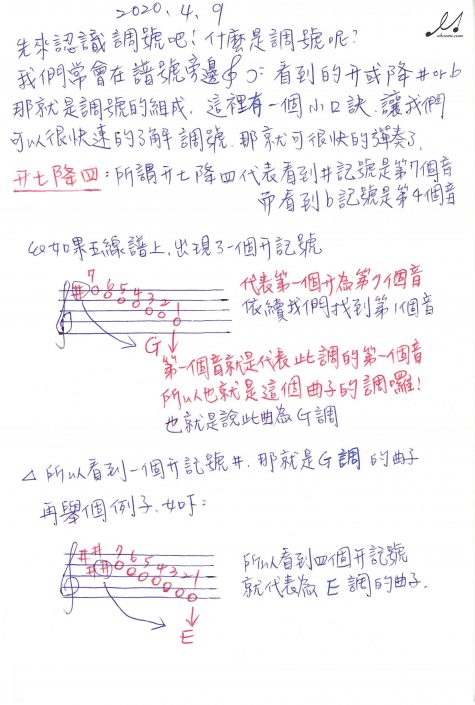 2020.4.9
ukozmi.com
先來認識調號吧!什麼是調號呢?
我們常會在譜號旁邊 看到的升或降#or b
那就是調號的組成,這裡有一個小口訣.讓我們
可以很快速的了解調號.那就可很快的彈奏了.
升七降四:所謂升七降四代表看到#記號是第7個音
而看到b記號是第4個音
如果五線譜上,出現了一個升記號
# 7 6 5 4 3 2 1
代表第一個升為第7個音
依續我們找到第1個音
G
第一個音就是代表此調的第一個音
所以也就是這個曲子的調囉!
也就是說此曲為G調
△所以看到一個升記號#.那就是G調的曲子
再舉個例子.如下:
# # # # 7 6 5 4 3 2 1
所以看到四個升記號
就代表為E調的曲子.
E